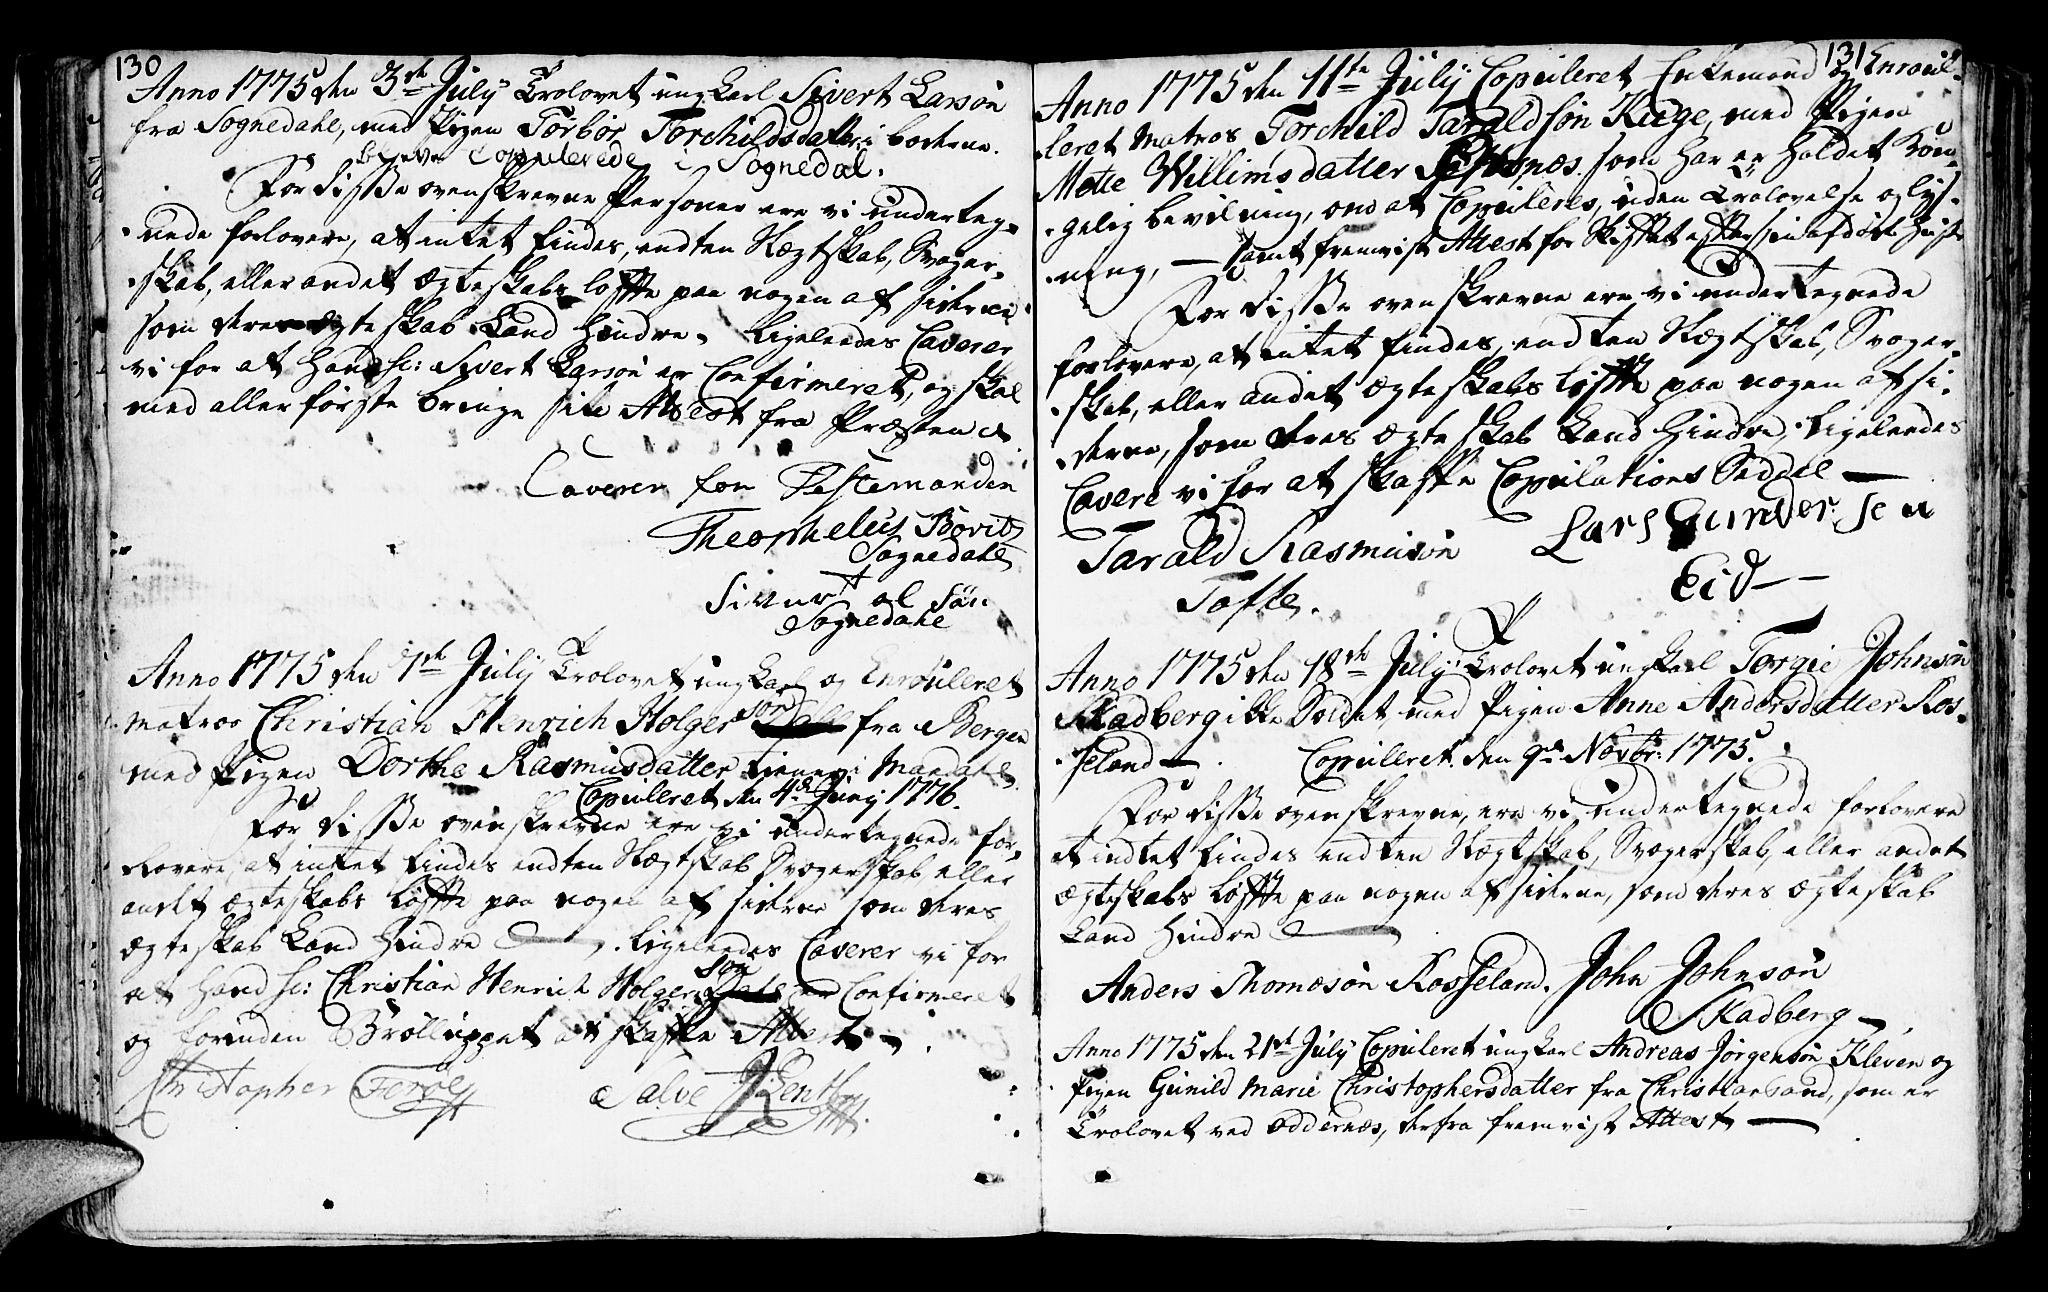 130
Anno 1775 den 3de July Trolovet ung Karl Sivert Larsøn
fra Sognedahl, med Pigen Torbor Torchildsdatter
bleve Copulerede i Sognedal.
For disse ovenskrevne Personer ere vi underteg-
nede forlovere, at intet findes, endten Slegtskab, Svoger-
skab, eller andet Ægteskabs løffte paa nogen af siderne
som deres Ægteskab Kand hindre. Ligeleedes Caverer
vi for at Hand sc: Sivert Larsøn er Confirmeret, og skal
med allerførste bringe sin Attest fra Præsten
Caverer for Festemanden
Theophelus Boritz
Sognedahl
Sivert ol Søn
Sognedahl
Anno 1775 den 7de July Trolovet ung Karl og Enroulleret
matros Christian Henrich Holger Søn fra Bergen
med Pigen Dorthe Rasmusdatter tiener i Mandahl
Copulleret den 4de Juny 1776.
For disse ovenskrevne ere vi undertegnede for-
lovere, at intet findes endten Slegtskab Svogerskab eller
andet Ægteskabs Løffte paa nogen af siderne som deres
Ægteskab Kand hindre. Ligeleedes Caverer vi for
at Hand sc: Christian Henrich Holger Søn er Confirmeret
og forinden Brølluppet at skaffe Attest
Christopher Ferøe
Salve
131
Anno 1775 den 11te July Copuleret Enkemand og Enroul-
leret Matros Torchild Taraldsøn Kege, med Pigen
Mette Willimsdatter som har er holdet Kon-
gelig bevilning, om at Copuleres, uden Trolovelse og lys-
ning, samt fremvist Attest for Skiftet efter sin afdøde Hustr
For disse ovenskrevne ere vi undertegnede
forlovere, at intet findes, endten Slegtskab, Svoger-
skab, eller andet Ægteskabs løffte paa nogen af si-
derne, som deres Ægteskab Kand hindre, Ligeleedes
Cavere vi for at skaffe Copulations Seddel
Tarald Rasmusøn
Tofte.
Lars Gundersen
Eid
Anno 1775 den 18de July Trolovet ungkarl Torgie Johnsøn
Skadberg ikke Soldat, med Pigen Anne Andersdatter Ros-
seland. Copulleret den 9de Novbr: 1775.
For disse ovenskrevne, ere vi undertegnede forlovere
at indtet findes endten Slegtskab, Svogerskab, eller andet
Ægteskabs løffte paa nogen af siderne, som deres Ægteskab
Kand hindre
Anders Thomæsøn Rosseland. John Johnsøn
Skadberg
Anno 1775 den 21de July Copuleret ungkarl Andreas Jørgensøn Kleven og
Pigen Gunild Marie Christophersdatter fra Christiansand, som er
Trolovet ved Oddernes, derfra fremvist Attest